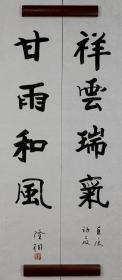 祥雲瑞氣
甘雨和風